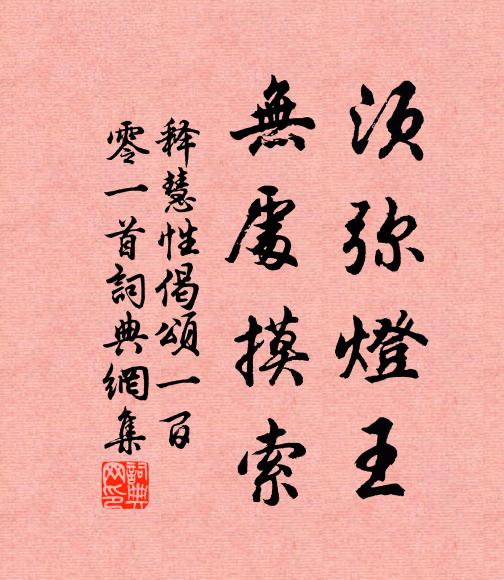 须弥燈王
無處摸索
释慧性偈頌一百
零一首詞典網集
詞典网印